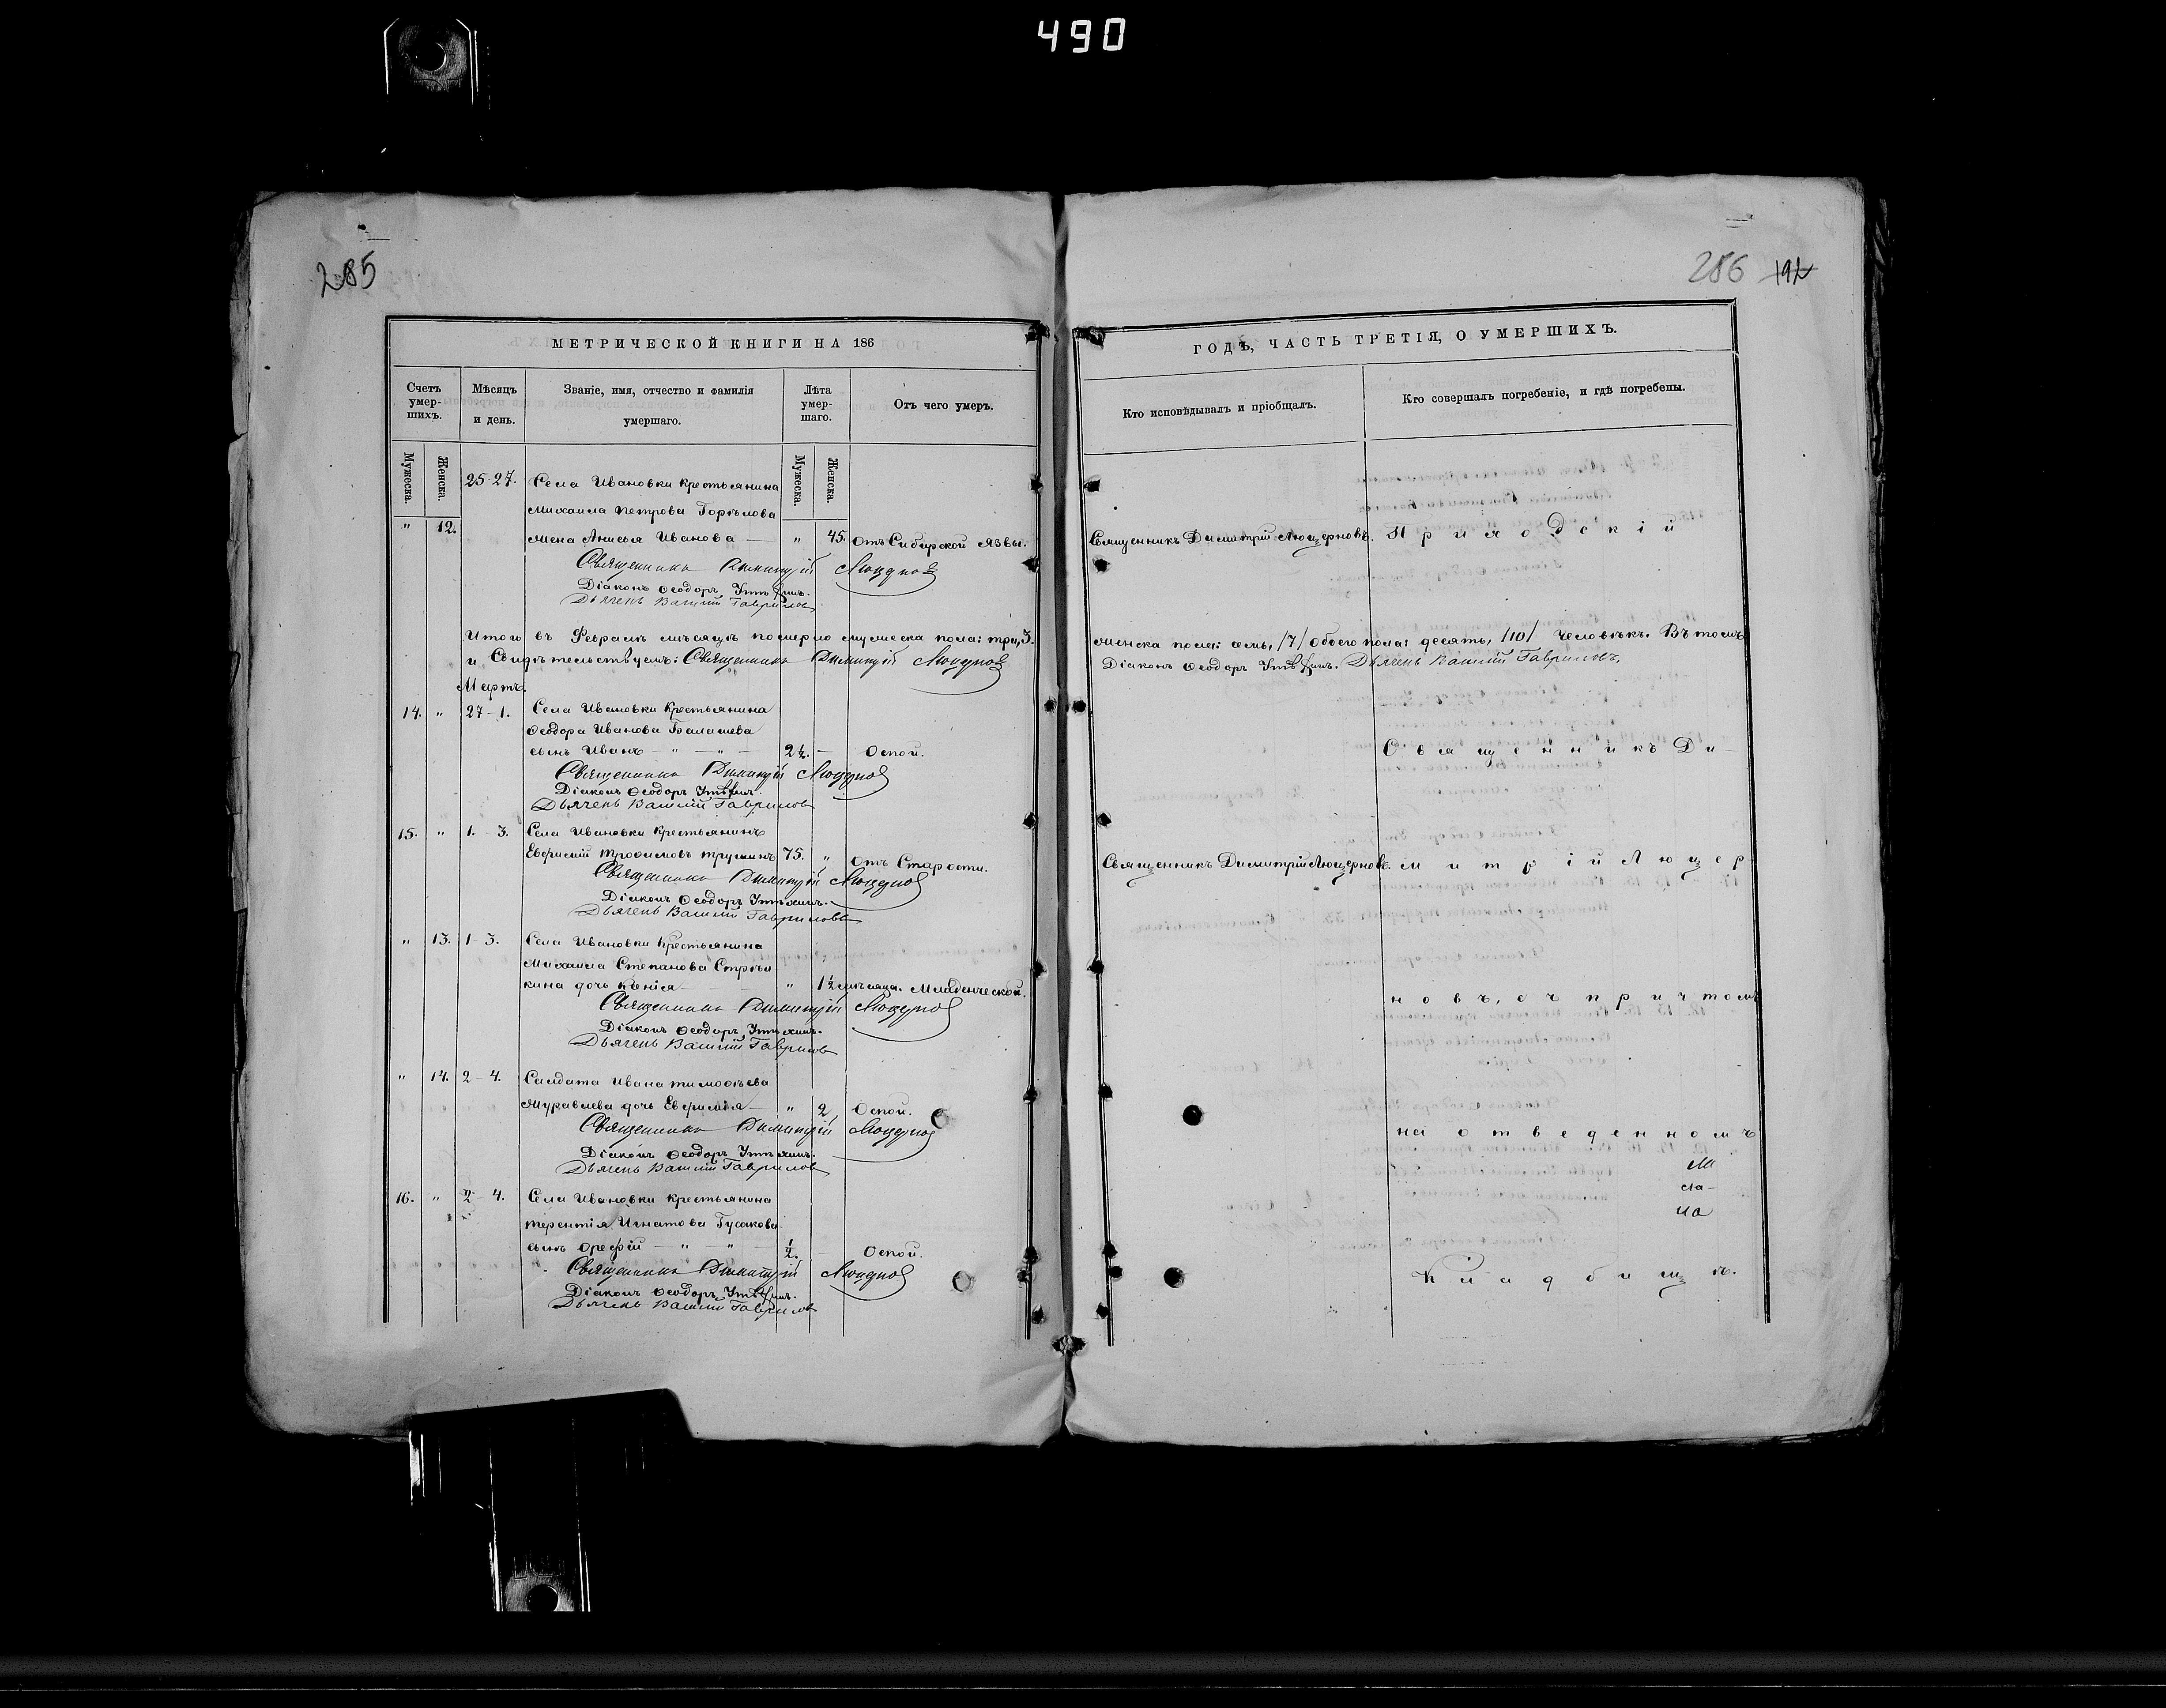 490
285
МЕТРИЧЕСКОЙ КНИГИ НА 186
Счетъ умер-шихъ.
Мѣсяцъ и день.
Званіе, имя, отчество и фамилія умершаго.
Лѣта умер-шаго.
Отъ чего умеръ.
Мужеска.
Женска.
Мужеска.
Женска.
25-27. Села Ивановки крестьянина
Михаила Петрова Горѣлова
" 12. жена Анисья Иванова — " 45. Отъ Сибирской язвы.
Священникъ Димитрій Люцерновъ
Діаконъ Ѳеодоръ
Дьячекъ Василій Гавриловъ
Итого въ Февралѣ мѣсяцѣ померло мужеска пола: три, 3.
и Свидѣтельствуемъ: Священникъ Димитрій Люцерновъ
Мартъ.
14. " 27-1. Села Ивановки крестьянина
Ѳеодора Иванова Балашева
сынъ Иванъ — " — " — 2½. — Оспой.
Священникъ Димитрій Люцерновъ
Діаконъ Ѳеодоръ
Дьячекъ Василій Гавриловъ
15. " 1.-3. Села Ивановки крестьянинъ
Евфимій Трофимовъ 75. " Отъ Старости.
Священникъ Димитрій Люцерновъ
Діаконъ Ѳеодоръ
Дьячекъ Василій Гавриловъ
" 13. 1-3. Села Ивановки крестьянина
Михаила Степанова Стрѣл
кина дочь Ксенія — " 1½ мѣсяца. Младенческой.
Священникъ Димитрій Люцерновъ
Діаконъ Ѳеодоръ
Дьячекъ Василій Гавриловъ
" 14. 2-4. Салдата Ивана Тимоѳѣева
Муравлева дочь Евфимія — " 2 Оспой.
Священникъ Димитрій Люцерновъ
Діаконъ Ѳеодоръ
Дьячекъ Василій Гавриловъ
16. " 2-4. Села Ивановки крестьянина
Терентія Игнатова Гусакова
сынъ Орефій — " — " ½. — Оспой.
Священникъ Димитрій Люцерновъ
Діаконъ Ѳеодоръ
Дьячекъ Василій Гавриловъ
286 192
ГОДЪ, ЧАСТЬ ТРЕТІЯ, О УМЕРШИХЪ.
Кто исповѣдывалъ и пріобщалъ.
Кто совершалъ погребеніе, и гдѣ погребены.
Священникъ Димитрій Люцерновъ. Приходскій
женска пола: семь, /7/ Обоего пола: десять, /10/ Человѣкъ. Въ томъ
Діаконъ Ѳеодоръ Дьячекъ Василій Гавриловъ,
Священникъ Ди-
Священникъ Димитрій Люцерновъ. митрій Люцер-
новъ, съ причтомъ
на отведенномъ
кладбищѣ.